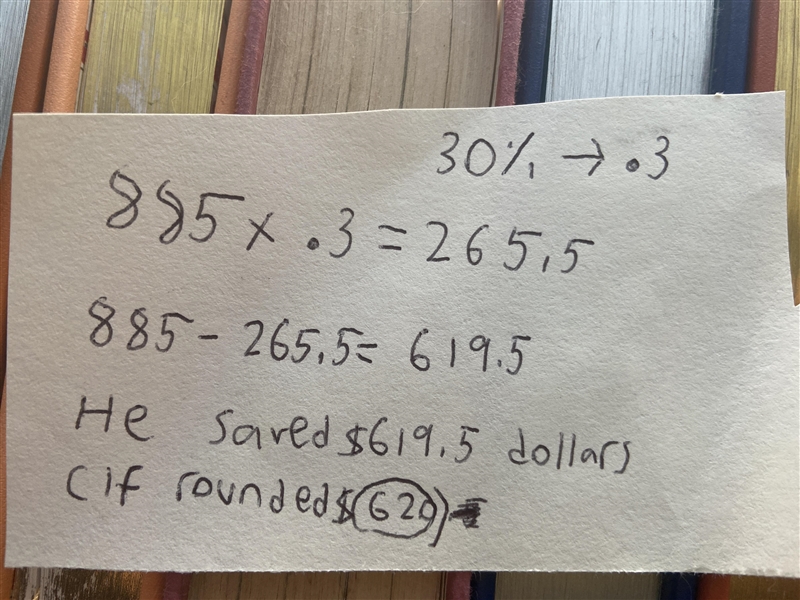 30% → .3
885 x .3 = 265.5
885 - 265.5 = 619.5
He saved $619.5 dollars
(if rounded $620)